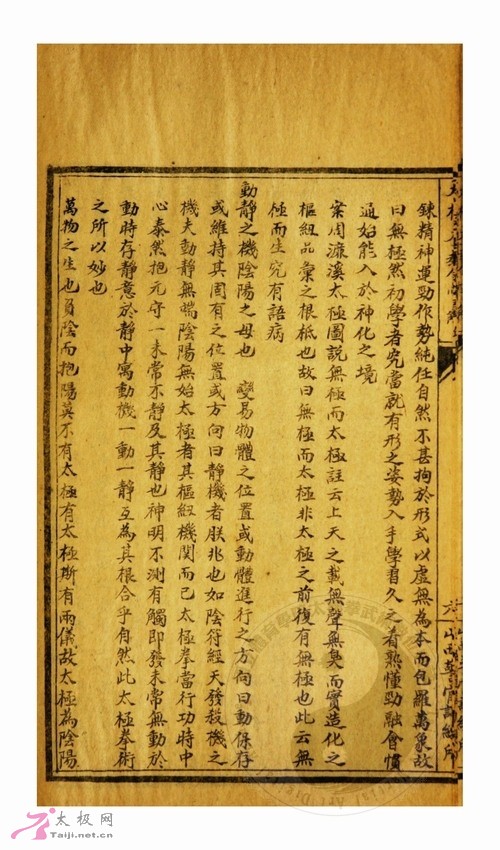 鍊精神運勁作勢純任自然不甚拘於形式以虛無為本而包羅萬象故
曰無極然初學者究當就有形之姿勢入手學習久之着熟懂勁融會慣
通始能入於神化之境
案周濂溪太極圖說無極而太極註云上天之載無聲無臭而實造化之
樞紐品彙之根柢也故曰無極而太極非太極之前復有無極也此云無
極而生究有語病
動靜之機陰陽之母也 變易物體之位置或動體進行之方向曰動保存
或維持其固有之位置或方向曰靜機者朕兆也如陰符經天發殺機之
機夫動靜無端陰陽無始太極者其樞紐機關而已太極拳當行功時中
心泰然抱元守一未常不靜及其靜也神明不測有觸即發未常無動於
動時存靜意於靜中寓動機一動一靜互為其根合乎自然此太極拳術
之所以妙也
萬物之生也負陰而抱陽莫不有太極有太極斯有兩儀故太極為陰陽
太极网
Taiji.net.cn